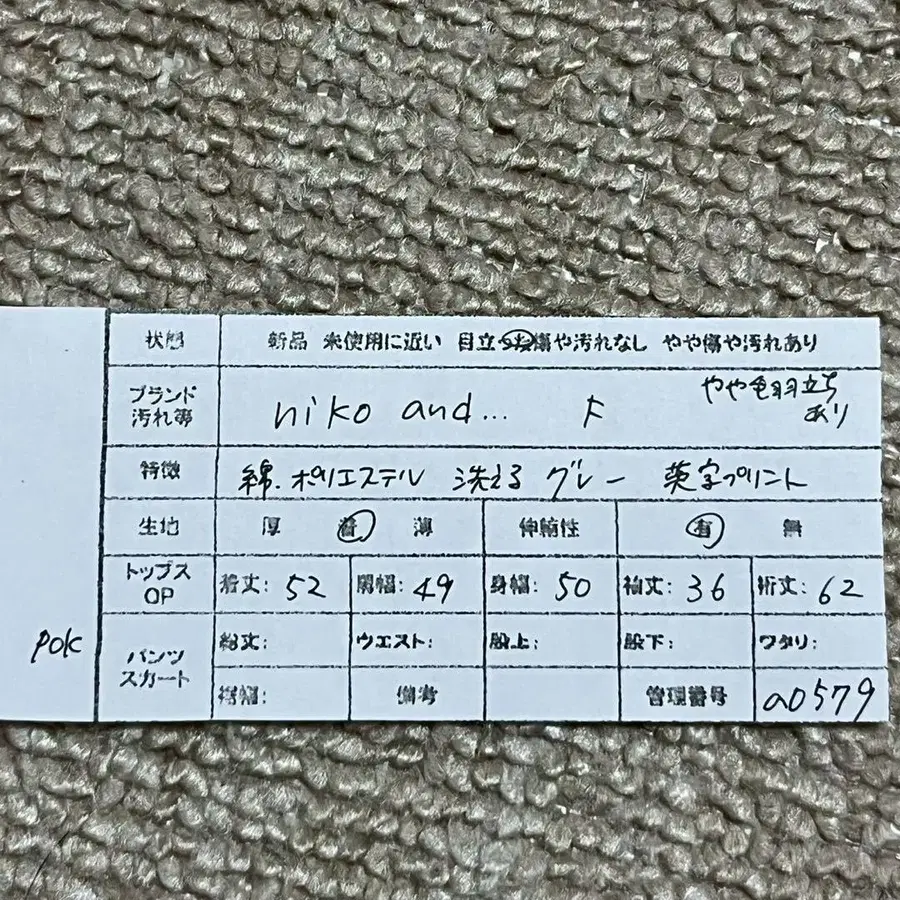 状態 新品 未使用に近い 目立った傷や汚れなし やや傷や汚れあり
ブランド 汚れ等 niko and... F やや毛羽立ち あり
特徴 綿.ポリエステル 洗える グレー 英字プリント
生地 厚 普 薄 伸縮性 有 無
トップス OP 着丈: 52 肩幅: 49 身幅: 50 袖丈: 36 裄丈: 62
pok
パンツ スカート 総丈: ウエスト: 股上: 股下: ワタリ:
裾幅: 備考 管理番号 a0579